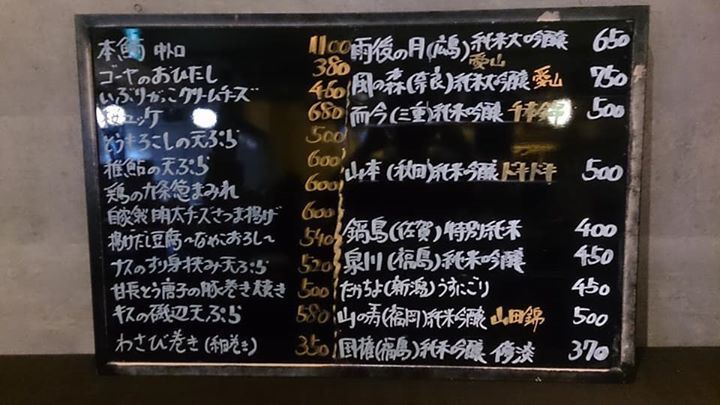 本鮪 中トロ 1100
ゴーヤのおひたし 380
いぶりがっこクリームチーズ 460
桜ユッケ 680
とうもろこしの天ぷら 500
稚鮎の天ぷら 600
鶏の九条葱まみれ 600
自家製明太チーズさつま揚げ 600
揚げだし豆腐〜なめこおろし〜 540
ナスのすり身挟み天ぷら 520
甘長とう唐子の豚巻き焼き 500
キスの磯辺天ぷら 580
わさび巻き(細巻き) 350
雨後の月(広島)純米大吟醸 650
愛山
風の森(奈良)純米大吟醸 愛山 750
而今(三重)純米吟醸 千本錦 500
山本(秋田)純米吟醸 ドキドキ 500
鍋島(佐賀)特別純米 400
泉川(福島)純米吟醸 450
たかちよ(新潟)うすにごり 450
山の寿(福岡)純米吟醸 山田錦 500
国権(福島)純米吟醸 370